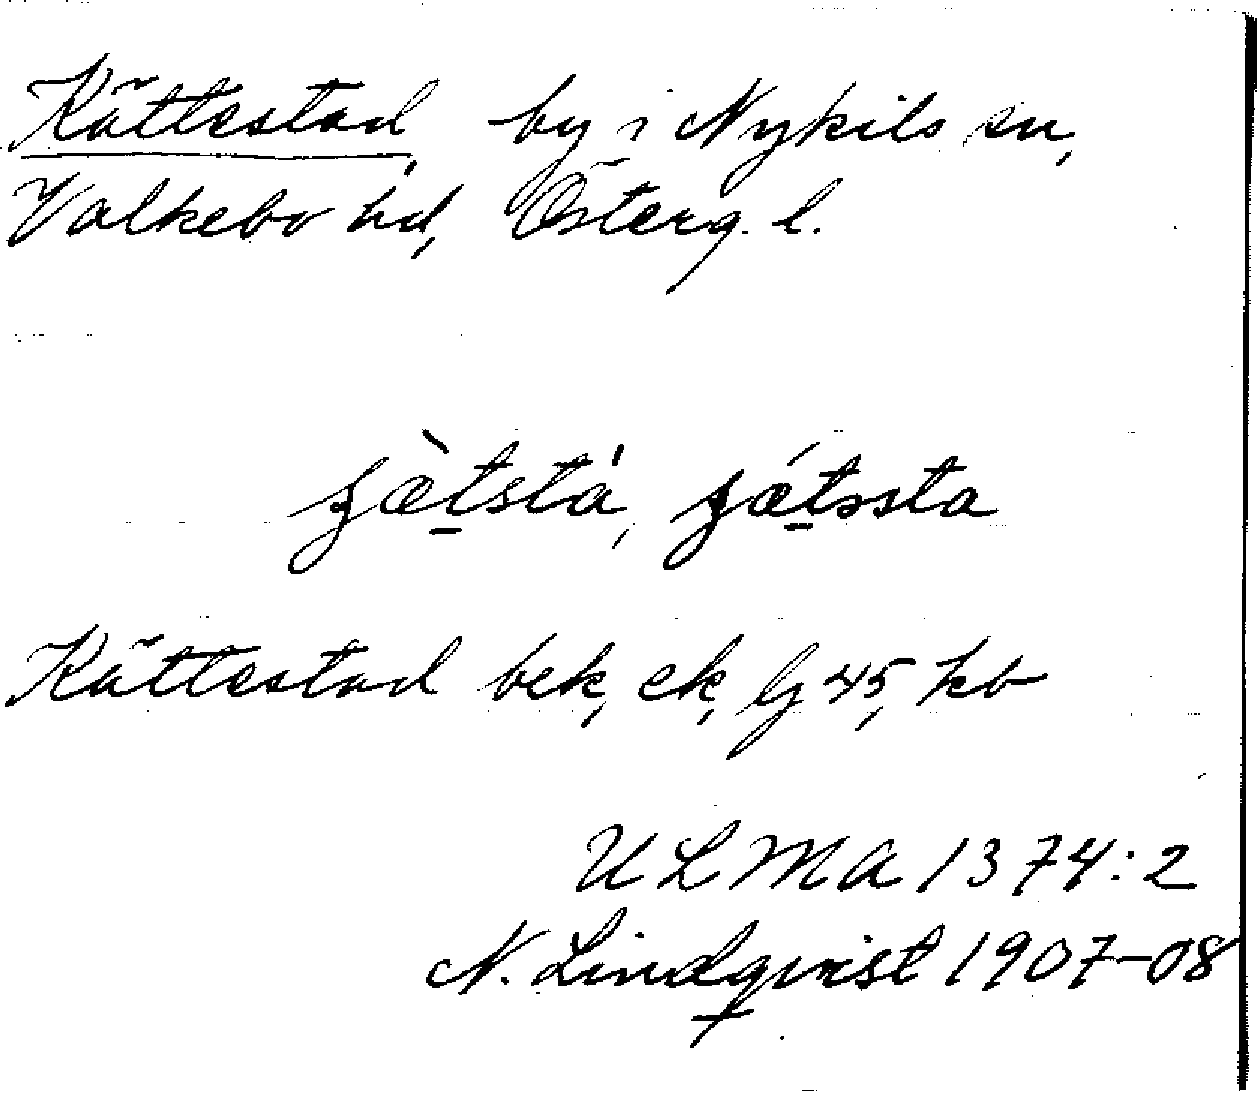 Kättestad, by i Nykils sn,
Valkebo hd, Österg. l.
Kättestad bek, ek, Gj 45, kb
ULMA 1374:2
N. Lindqvist 1907-08